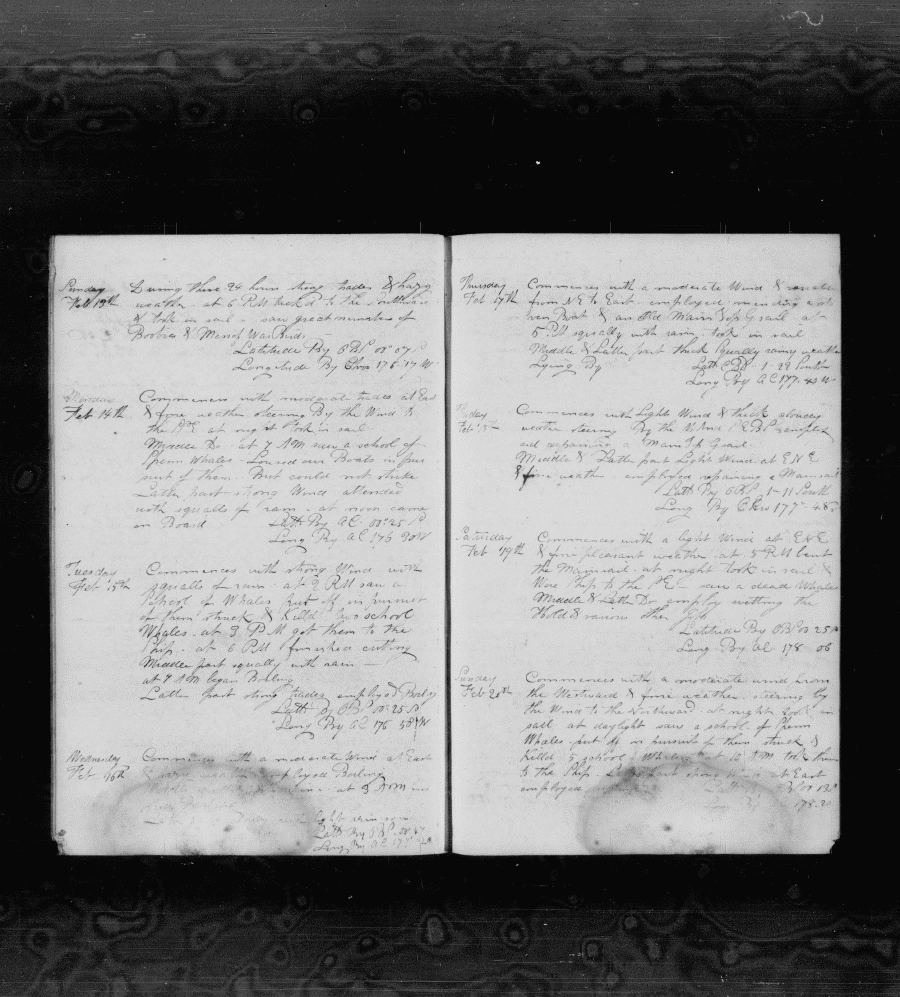 Sunday
Feb 13th
During these 24 hours strong trades & hazy
weather at 6 PM tack d to the Southward
& took in sail - saw great numbers of
Boobies & Man of War Birds
Latitude By OBS 00° 07 S
Longitude By Chro 175 17 W
Monday
Feb 14th
Commences with moderate trades at East
& fine weather steering By the Wind to
the NE at night took in sail
Middle Do at 7 AM saw a school of
Sperm Whales - Lowed our Boats in pur
suit of them But could not strike
Latter part strong Wind attended
with squalls of rain at noon came
on Board Latt By AC 00° 25 S
Long By AC 176 30 W
Tuesday
Feb 15th
Commences with strong Wind with
squalls of rain at 2 PM saw a
School of Whales put off in pursuit
of them struck & killd two school
Whales at 3 PM got them to the
Ship at 6 PM finished cutting
Middle part squally with rain
at 7 AM began Boiling
Latter part strong trades employd Boilg
Latt By OBS 00° 25 S
Long By AC 176 50 W
Wednesday
Feb 16th
Commences with a moderate Wind at East
& fine weather employd Boiling
at 3 AM
light rain
Latt By OBS
Long By AC
Thursday
Feb 17th
Commences with a moderate Wind &
from NE to East employed mending a sto
ven Boat & an Old Main Topg sail at
5 PM squally with rain took in sail
Middle & Latter part thick squally rainy weather
Lying By Latt OBS 1-22 South
Long By AC 177 43 W
Friday
Feb 18th
Commences with Light Wind & thick cloudy
weather steering By the Wind SEBS employ
ed repairing a Main T G sail
Middle & Latter part Light Wind at ENE
& fine weather employed repairing a Mainsail
Latt By OBS 1-11 South
Long By Chro 177° 48
Saturday
Feb 19th
Commences with a light Wind at ENE
& fine pleasant weather at 5 PM bent
the Mainsail at night took in sail &
Wore Ship to the SE saw a dead Whale
Middle & Latt Do employ the
Hold & various other jobs
Latitude By OBS 00 25 S
Long By AC 178 06
Sunday
Feb 20th
Commences with a moderate wind from
the Westward & fine weather steering by
the Wind to the Northward at night took in
sail at daylight saw a school of Sperm
Whales put off in pursuit of them struck &
killd 5 school Whales at 10 AM took them
to the Ship Latter part strong Wind at East
employed
178.20